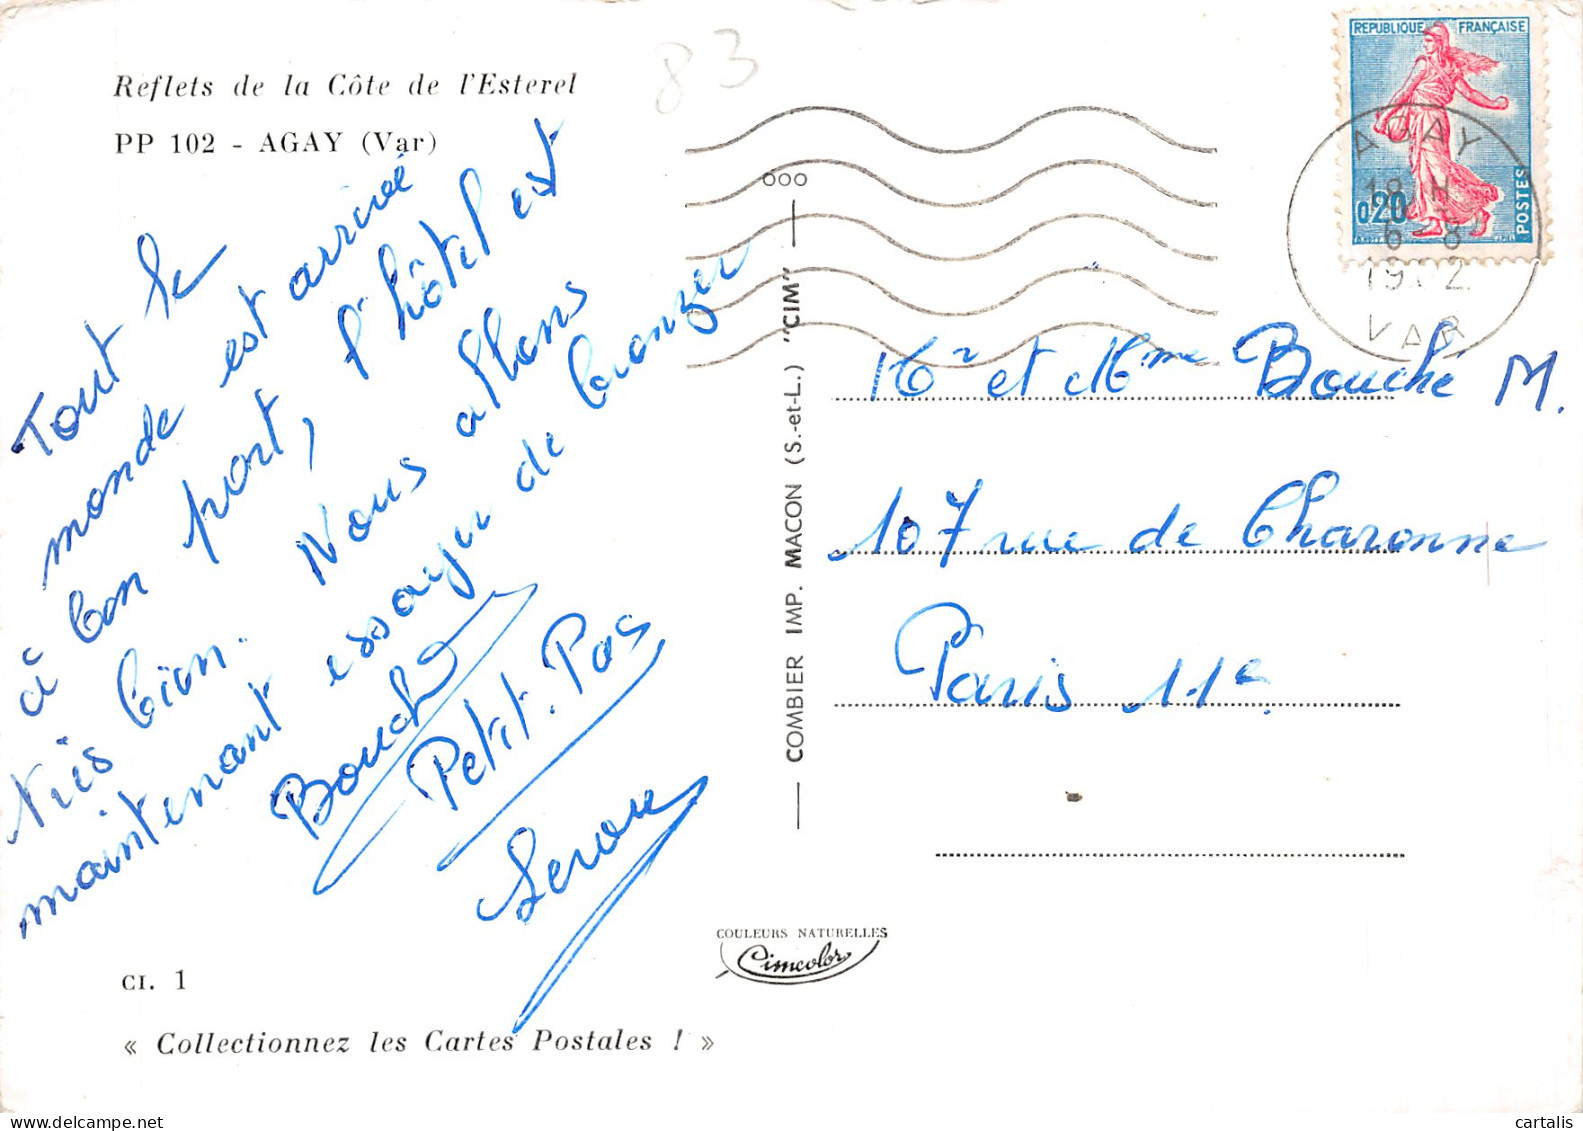 Reflets de la Côte de l'Esterel
PP 102 - AGAY (Var)
83
Tout le
monde est arrivé
à bon port, l'hôtel est
très bien. Nous allons
maintenant essayer de bronzer
Bouché
Petit-Pas
CI. 1
« Collectionnez les Cartes Postales ! »
COMBIER IMP. MACON (S.-et-L.) "CIM"
COULEURS NATURELLES
Cimcolor
REPUBLIQUE FRANÇAISE
0,20
POSTES
AGAY
18 H
6-8
VAR
Mr et Mme Bouché M.
107 rue de Charonne
Paris 11e
cartalis